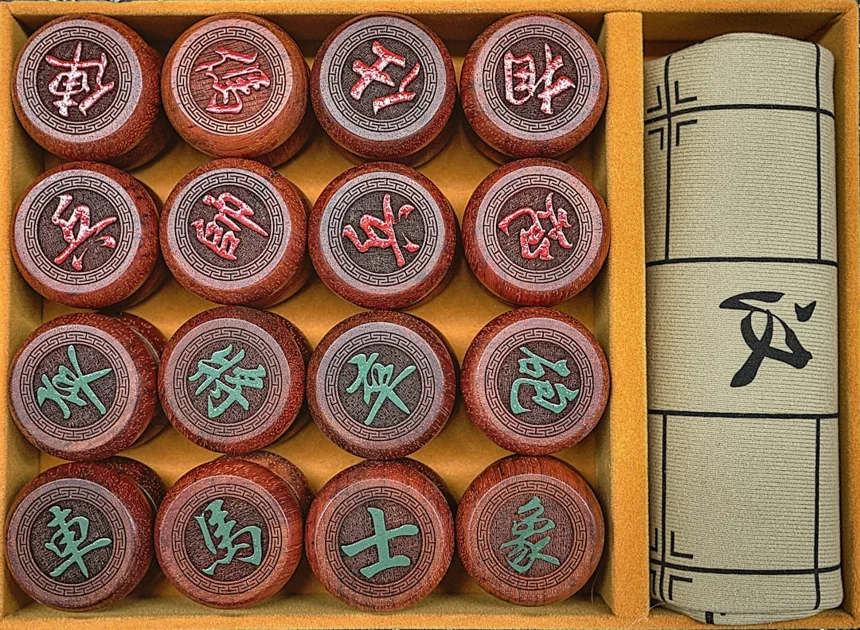 俥 傌 仕 相
兵 帥 兵 炮
卒 將 卒 砲
車 馬 士 象
汉